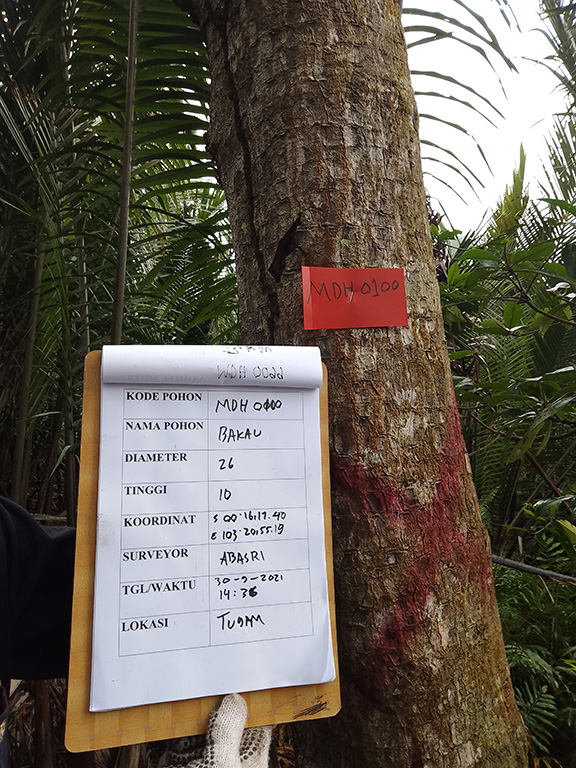 MDH 0100
KODE POHON MDH 0100
NAMA POHON BAKAU
DIAMETER 26
TINGGI 10
KOORDINAT S 00·16·17.40
E 103·20·55.19
SURVEYOR ABASRI
TGL/WAKTU 30-9-2021
14:36
LOKASI